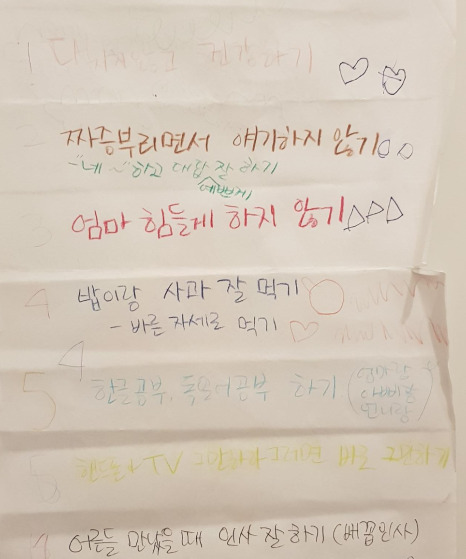 1 다 건강하기
2 짜증부리면서 얘기하지 않기
-"네~"하고 대답 잘 하기
예쁘게
3 엄마 힘들게 하지 않기
4 밥이랑 사과 잘 먹기
- 바른 자세로 먹기
4
5 한글공부, 독일어공부 하기 (엄마랑
아빠랑
언니랑)
5 핸드폰 TV 그만하라 그러면 바로 그만하기
어른들 만났을 때 인사 잘 하기 (배꼽인사)